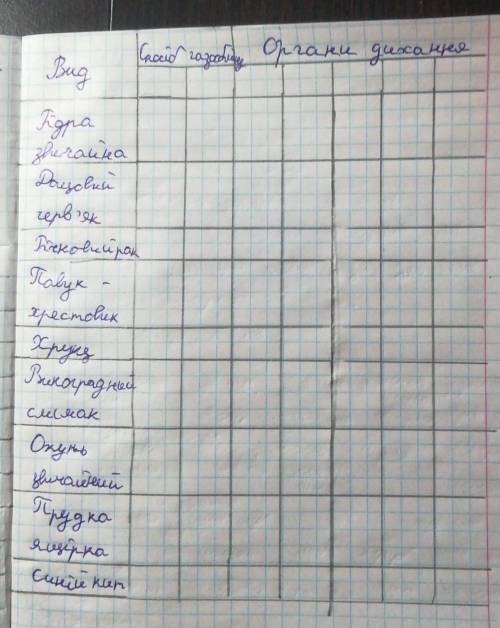 Вид
Спосіб газообміну
Органи дихання
Гідра
звичайна
Дощовий
черв'як
Річковий рак
Павук -
хрестовик
Хрущ
Виноградний
слимак
Окунь
звичайний
Прудка
ящірка
Синій кит